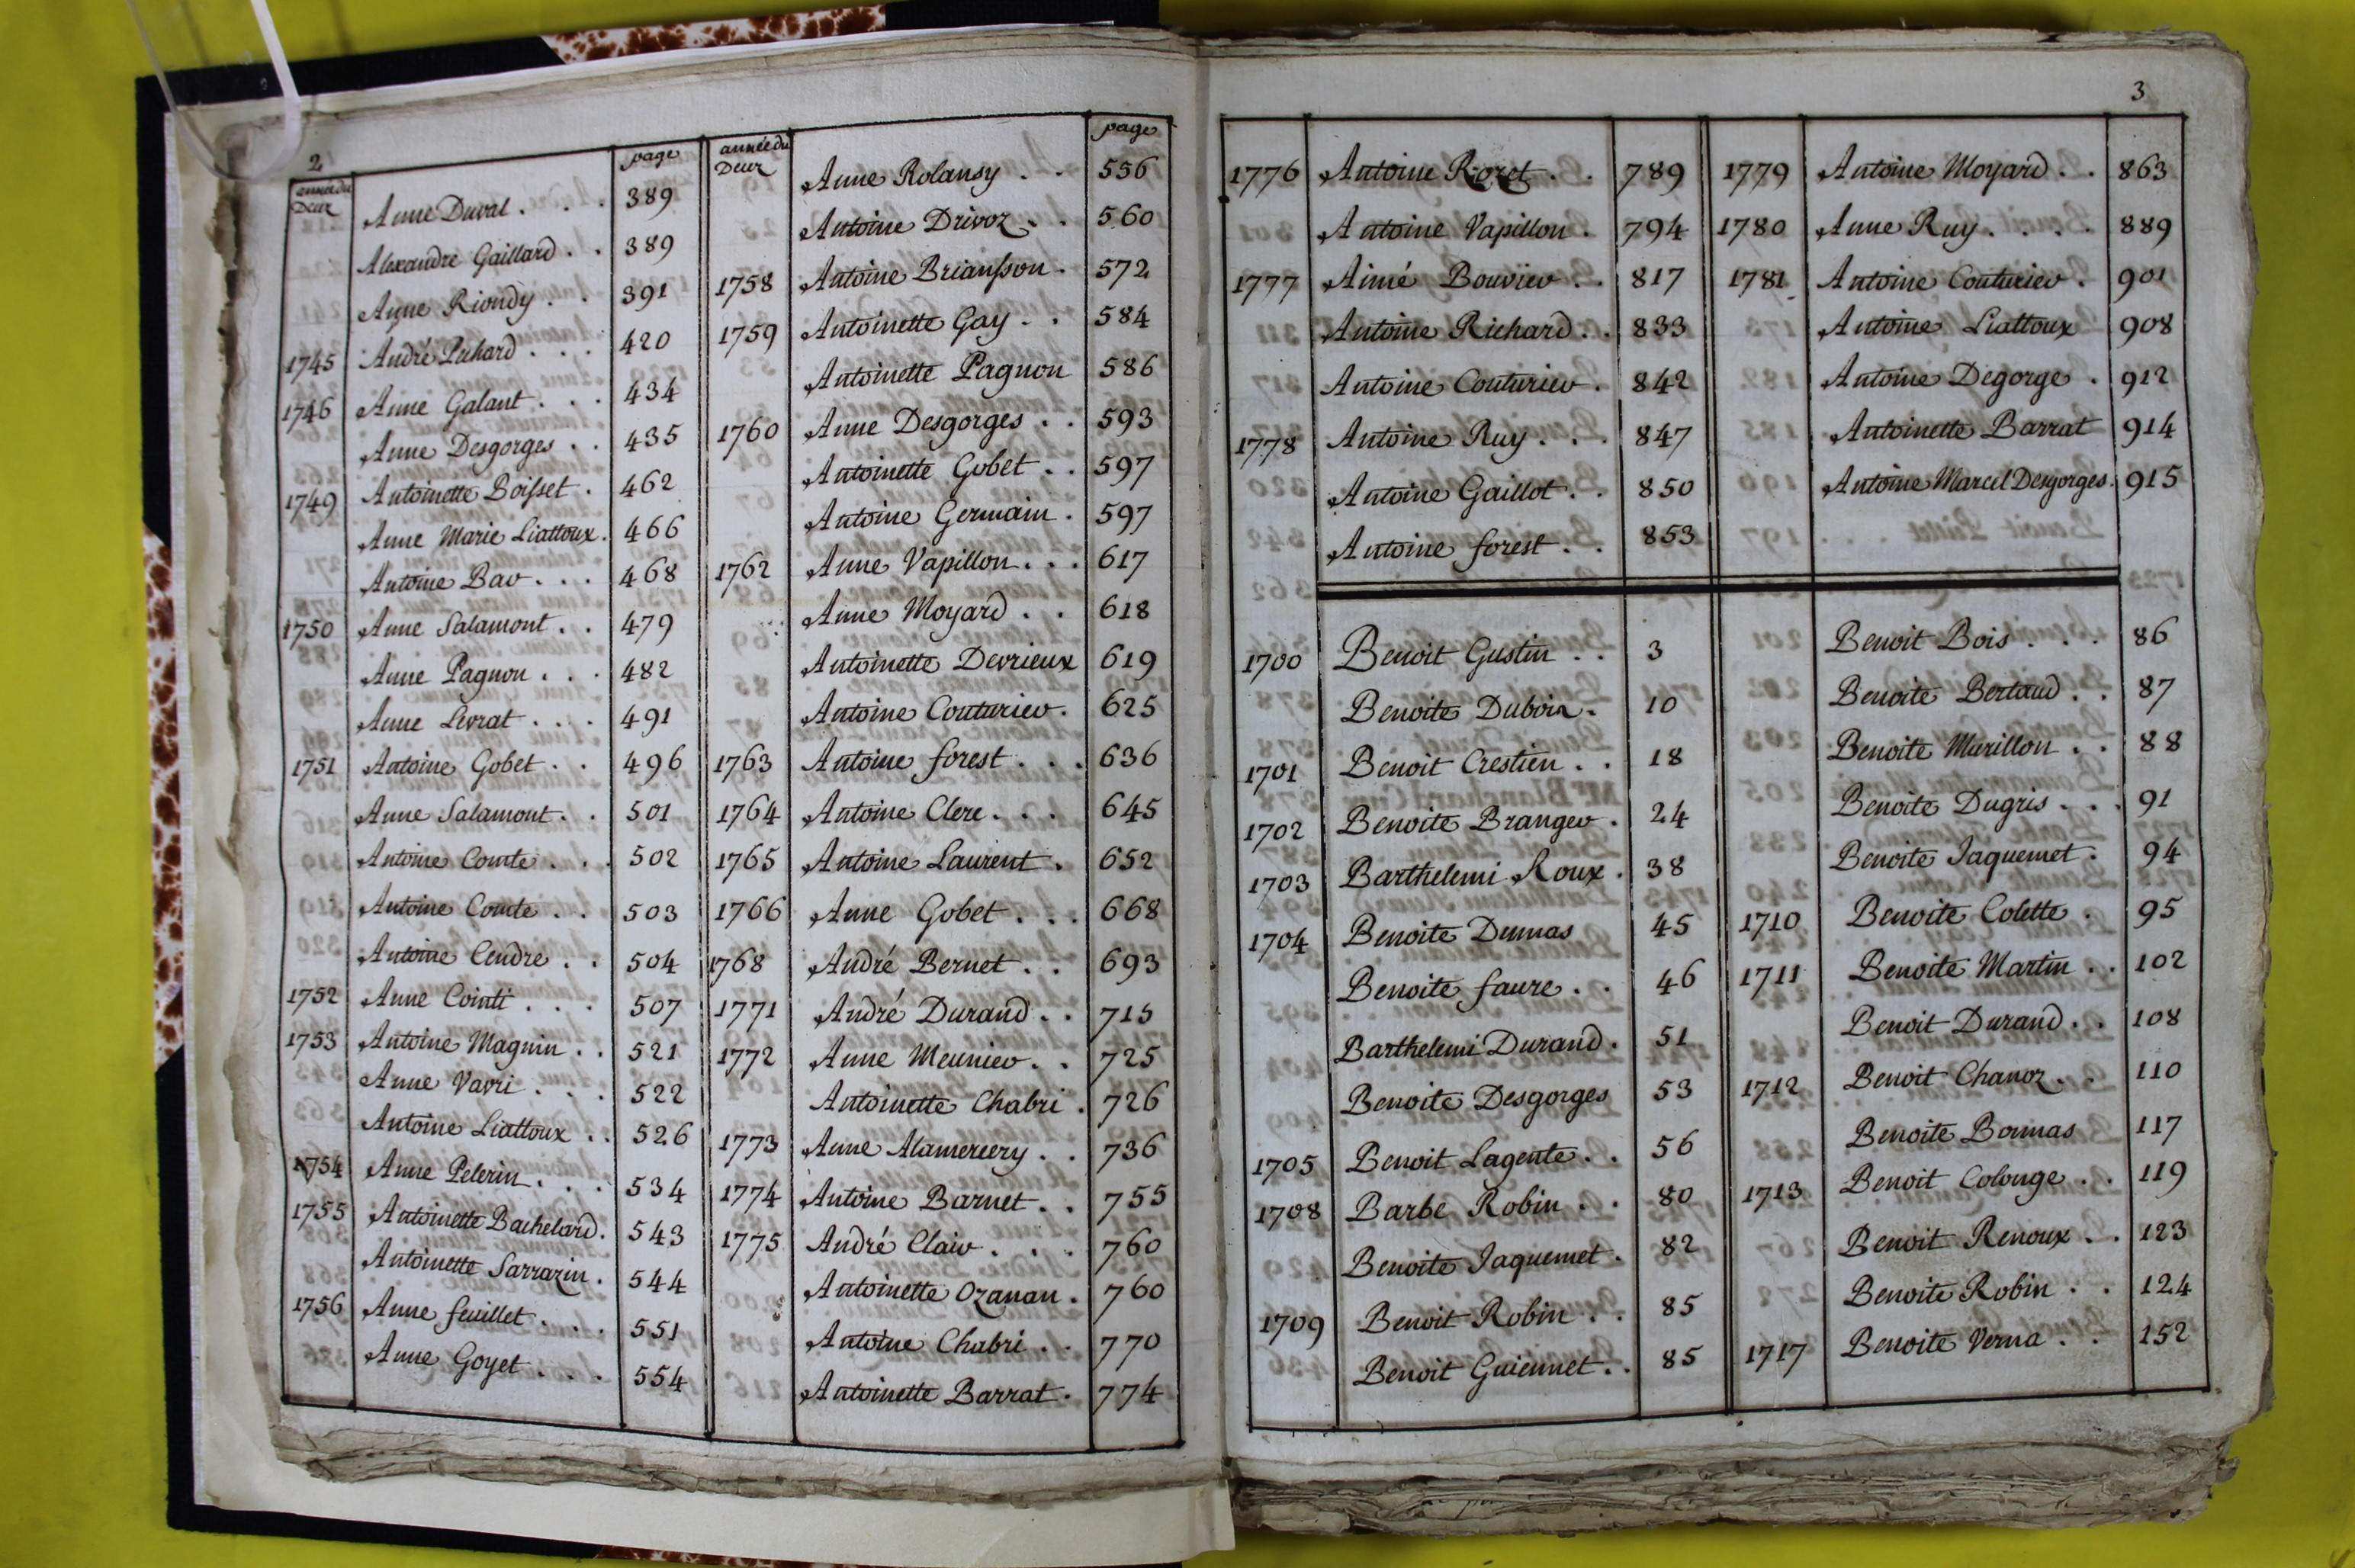 2
année du Decez page
Anne Duval . . . 389
Alexandre Gaillard . . 389
Anne Riondy . . 391
1745 André Richard . . . 420
1746 Anne Galant . . . 434
Anne Desgorges . . 435
1749 Antoinette Boisset . 462
Anne Marie Liattoux . 466
Antoine Bar . . . 468
1750 Anne Salamont . . 479
Anne Pagnon . . . 482
Anne Livrat . . . 491
1751 Antoine Gobet . . 496
Anne Salamont . . 501
Antoine Comte . . . 502
Antoine Comte . . 503
Antoine Cendre . . 504
1752 Anne Cointi . . . 507
1753 Antoine Magnin . . 521
Anne Vavri . . . 522
Antoine Liattoux . . 526
1754 Anne Pelerin . . . 534
1755 Antoinette Bachelard . 543
Antoinette Sarrazin . 544
1756 Anne feuillet . . . 551
Anne Goyet . . . 554
année du Decez page
Anne Rolansy . . 556
Antoine Drivoz . . 560
1758 Antoine Briansson . 572
1759 Antoinette Gay . . 584
Antoinette Pagnon 586
1760 Anne Desgorges . . 593
Antoinette Gobet . . 597
Antoine Germain . 597
1762 Anne Vapillon . . . 617
Anne Moyard . . 618
Antoinette Devrieux 619
Antoine Couturier . 625
1763 Antoine forest . . . 636
1764 Antoine Clerc . . . 645
1765 Antoine Laurent . 652
1766 Anne Gobet . . . 668
1768 André Bernet . . 693
1771 André Durand . . 715
1772 Anne Meunier . . 725
Antoinette Chabri . 726
1773 Anne Alamercery . . 736
1774 Antoine Barnet . . 755
1775 André Clair . . . 760
Antoinette Ozanan . 760
Antoine Chabri . . 770
Antoinette Barrat . 774
3
1776 Antoine Roret . . 789
Antoine Vapillon . 794
1777 Aimé Bouvier . . 817
Antoine Richard . . 833
Antoine Couturier . 842
1778 Antoine Ruy . . . 847
Antoine Gaillot . . 850
Antoine forest . . 853
1779 Antoine Moyard . . 863
1780 Anne Ruy . . . . 889
1781 Antoine Couturier . 901
Antoine Liattoux 908
Antoine Degorge . 912
Antoinette Barrat 914
Antoine Marcel Desgorges . 915
1700 Benoit Gustin . . 3
Benoite Dubois . 10
1701 Benoit Crestien . . 18
1702 Benoite Branger . 24
1703 Barthelemi Roux . 38
1704 Benoite Dumas 45
Benoite faure . . 46
Barthelemi Durand . 51
Benoite Desgorges 53
1705 Benoit Lagente . . 56
1708 Barbe Robin . . 80
Benoite Jaquemet . 82
1709 Benoit Robin . . 85
Benoit Guiennet . . 85
Benoit Bois . . . 86
Benoite Bertaud . . 87
Benoite Murillon . . 88
Benoite Dugris . . . 91
Benoite Jaquemet . 94
1710 Benoite Colette . 95
1711 Benoite Martin . . 102
Benoit Durand . . 108
1712 Benoit Chanoz . . 110
Benoite Bonnas 117
1713 Benoit Colonge . . 119
Benoit Renoux . . 123
Benoite Robin . . 124
1717 Benoite Verna . . 152